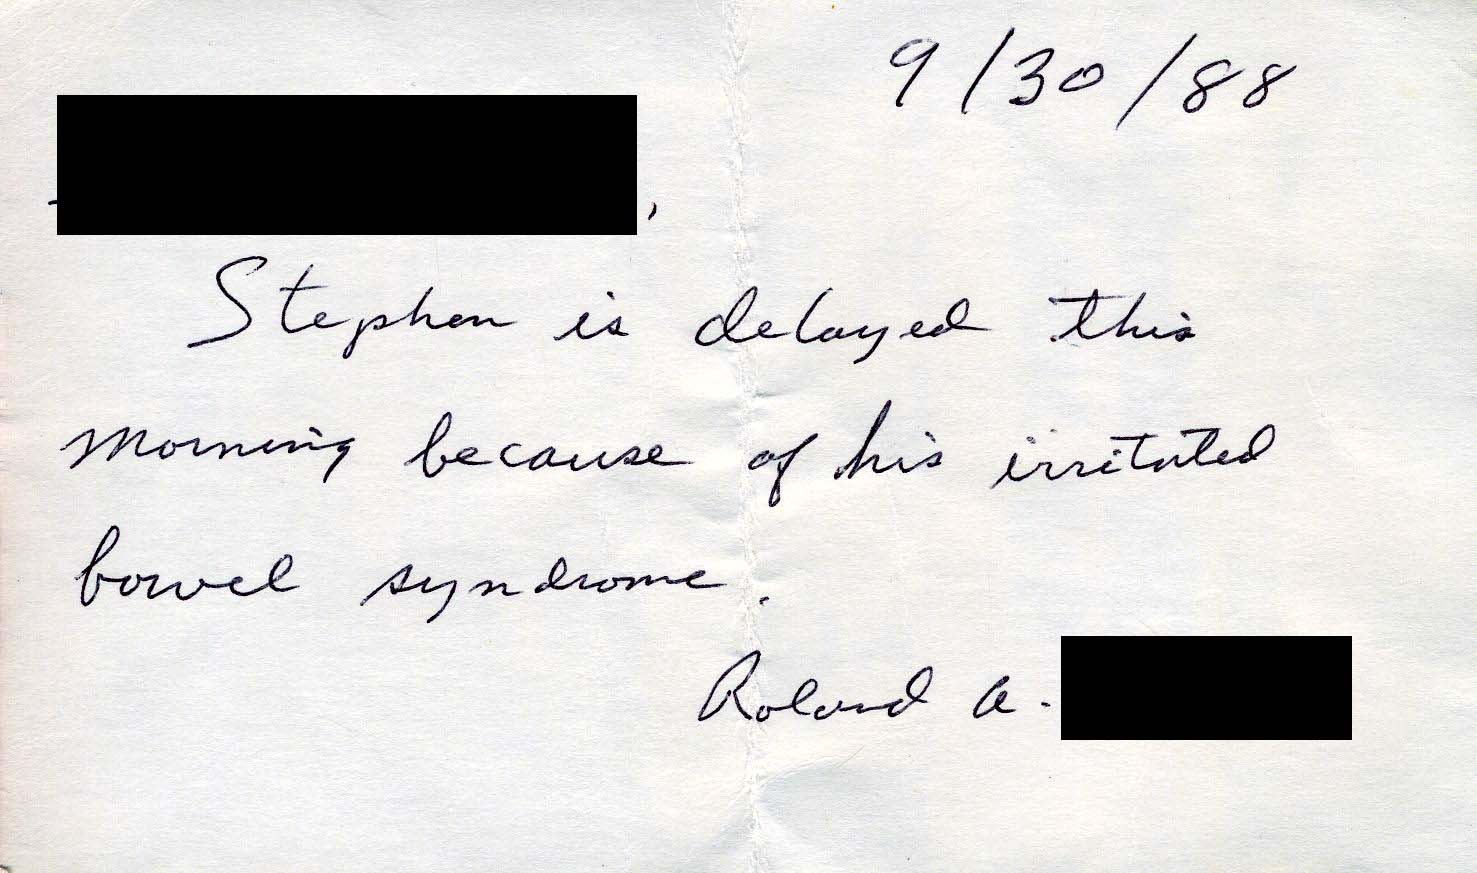 9/30/88
,
Stephen is delayed this
morning because of his irritated
bowel syndrome.
Roland A.